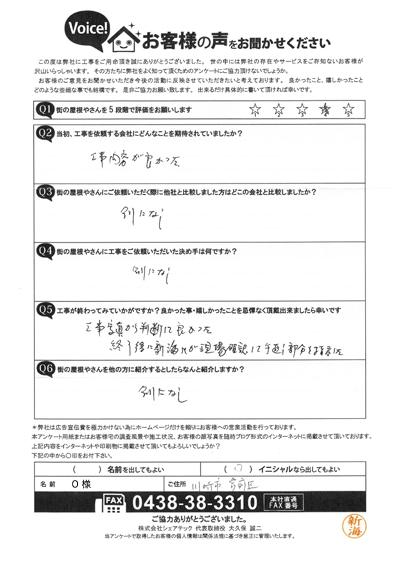 Voice! お客様の声をお聞かせください
この度は弊社に工事をご用命頂き誠にありがとうございました。世の中には弊社の存在やサービスをご存知ないお客様が
沢山いらっしゃいます。その方たちに弊社をよく知って頂くためのアンケートにご協力頂けないでしょうか。
お客様のご意見をお聞かせいただき今後の活動に反映させていただきたいと考えております。良かったこと、嬉しかったこと
どのような些細な事でも結構です。是非ご協力お願い致します。出来るだけ具体的に書いて頂ければ幸いです。
Q1 街の屋根やさんを5段階で評価をお願いします ☆ ☆ ☆ ☆ ☆
Q2 当初、工事を依頼する会社にどんなことを期待されていましたか?
工事内容が良かった
Q3 街の屋根やさんにご依頼いただく際に他社と比較しました方はどこの会社と比較しましたか?
別になし
Q4 街の屋根やさんに工事をご依頼いただいた決め手は何ですか?
別になし
Q5 工事が終わってみていかがですか?良かった事・嬉しかったことを忌憚なく頂戴出来ましたら幸いです
工事写真から判断して良かった
終了後に新海氏が現場確認して手直し部分を
Q6 街の屋根やさんを他の方に紹介するとしたらなんと紹介しますか?
別になし
*弊社は広告宣伝費を極力かけない為にホームページだけを頼りにお客様への営業活動を行っております。
本アンケート用紙またはお客様宅の調査風景や施工状況、お客様の顔写真を随時ブログ形式のインターネットに掲載させて頂いております。
上記内容をインターネットや印刷物に掲載させて頂いてもよろしいでしょうか?
下記の中から〇印をお付下さい。
( )名前を出してもよい (〇)イニシャルなら出してもよい
名前 O様 ご住所 川崎市宮前区
FAX 0438-38-3310 本社直通 FAX番号
ご協力ありがとうございました。
株式会社シェアテック 代表取締役 大久保 誠二
当アンケートで取得したお客様の個人情報は関係法規に基づき厳正に管理いたします。
新海